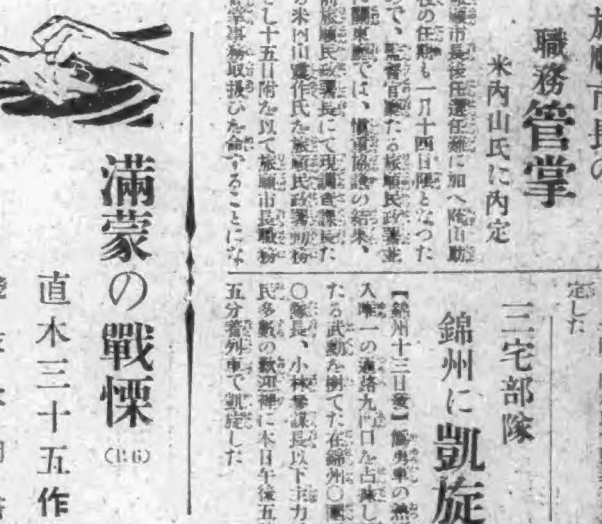 旅順市長の
職務管掌
米内山氏に内定
旅順市長後任選任難に加へ陸山助
役の任期も一月十四日限となつた
ので、監督官廳たる旅順民政署並
に關東廳では、愼重協議の結果、
前旅順民政署長にて現調査課長た
る米内山震作氏を旅順民政署勤務
とし十五日附を以て旅順市長職務
管掌事務取扱ひを命ずることにな
定した
三宅部隊
錦州に凱旋
【錦州十三日發】
入唯一の通路九門口を占據し
たる武勳を樹てた在錦州〇團
〇隊長、小林參謀長以下主力
民多數の歡迎裡に本日午後五
五分着列車で凱旋した
滿蒙の戰慄
直木三十五作